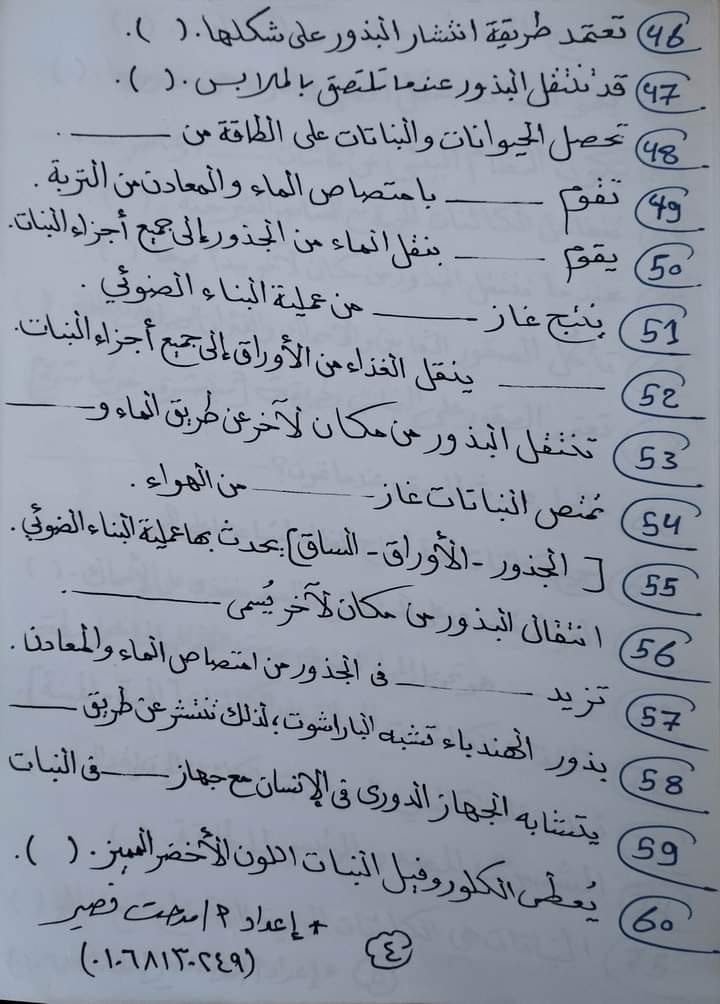 46 تعتمد طريقة انتشار البذور على شكلها. ( ).
47 قد تنتقل البذور عندما تلتصق بالملابس. ( ).
48 تحصل الحيوانات والنباتات على الطاقة من ـــــــ.
49 تقوم ـــــــ بامتصاص الماء والمعادن من التربة.
50 يقوم ـــــــ بنقل الماء من الجذور إلى جميع أجزاء النبات.
51 ينتج غاز ـــــــ من عملية البناء الضوئي.
52 ـــــــ ينقل الغذاء من الأوراق إلى جميع أجزاء النبات.
53 تنتقل البذور من مكان لآخر عن طريق الماء و ـــــــ
54 تمتص النباتات غاز ـــــــ من الهواء.
55 [الجذور - الأوراق - الساق] يحدث بها عملية البناء الضوئي.
56 انتقال البذور من مكان لآخر يُسمى ـــــــ.
57 تزيد ـــــــ فى الجذور من امتصاص الماء والمعادن.
58 بذور الهندباء تشبه الباراشوت، لذلك تنتشر عن طريق ـــــــ
59 يتشابه الجهاز الدورى فى الإنسان مع جهاز ـــــــ فى النبات
60 يُعطى الكلوروفيل النبات اللون الأخضر المميز. ( ).
* إعداد م/ مدحت قصير
٤
(٠١٠٦٨١٣٠٢٤٩)